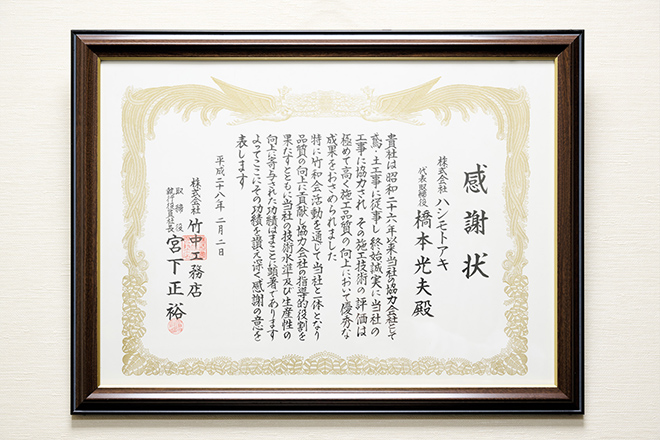 感謝状
株式会社 ハシモトアキ
代表取締役 橋本光夫殿
貴社は昭和二十六年以来当社の協力会社として
鳶・土工事に従事し終始誠実に当社の
工事に協力され その施工技術の評価は
極めて高く施工品質の向上において優秀な
成果をおさめられました
特に竹和会活動を通じて当社と一体となり
品質の向上に貢献し協力会社の指導的役割を
果たすとともに当社の技術水準及び生産性の
向上に寄与された功績はまことに顕著であります
よってここにその功績を讃え深く感謝の意を
表します
平成二十八年 二月 二日
株式会社 竹中工務店
取締役
執行役員社長 宮下正裕